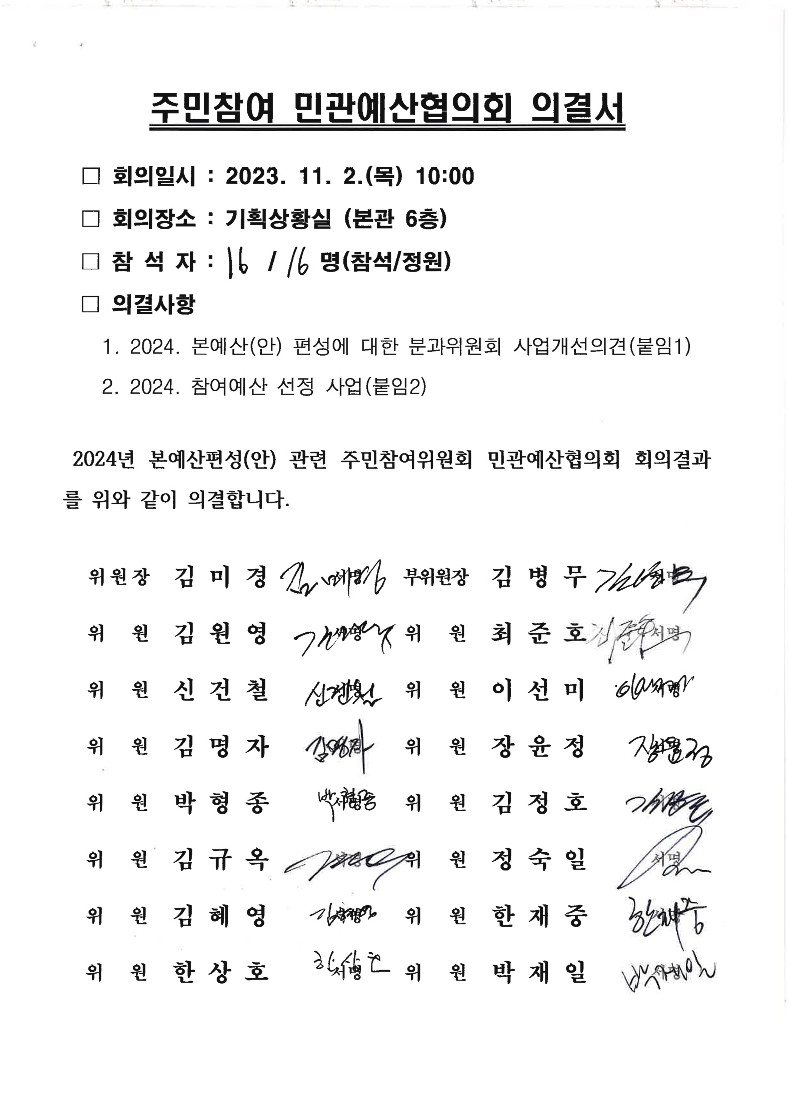 주민참여 민관예산협의회 의결서
□ 회의일시 : 2023. 11. 2.(목) 10:00
□ 회의장소 : 기획상황실 (본관 6층)
□ 참 석 자 : 16 / 16 명(참석/정원)
□ 의결사항
1. 2024. 본예산(안) 편성에 대한 분과위원회 사업개선의견(붙임1)
2. 2024. 참여예산 선정 사업(붙임2)
2024년 본예산편성(안) 관련 주민참여위원회 민관예산협의회 회의결과
를 위와 같이 의결합니다.
위원장 김 미 경 김미경 부위원장 김 병 무
위 원 김 원 영 위 원 최 준 호 최준호 서명
위 원 신 건 철 신건철 위 원 이 선 미
위 원 김 명 자 김명자 위 원 장 윤 정 장윤정
위 원 박 형 종 박형종 위 원 김 정 호
위 원 김 규 옥 위 원 정 숙 일 서명
위 원 김 혜 영 위 원 한 재 중 한재중
위 원 한 상 호 한상호 서명 위 원 박 재 일 박재일